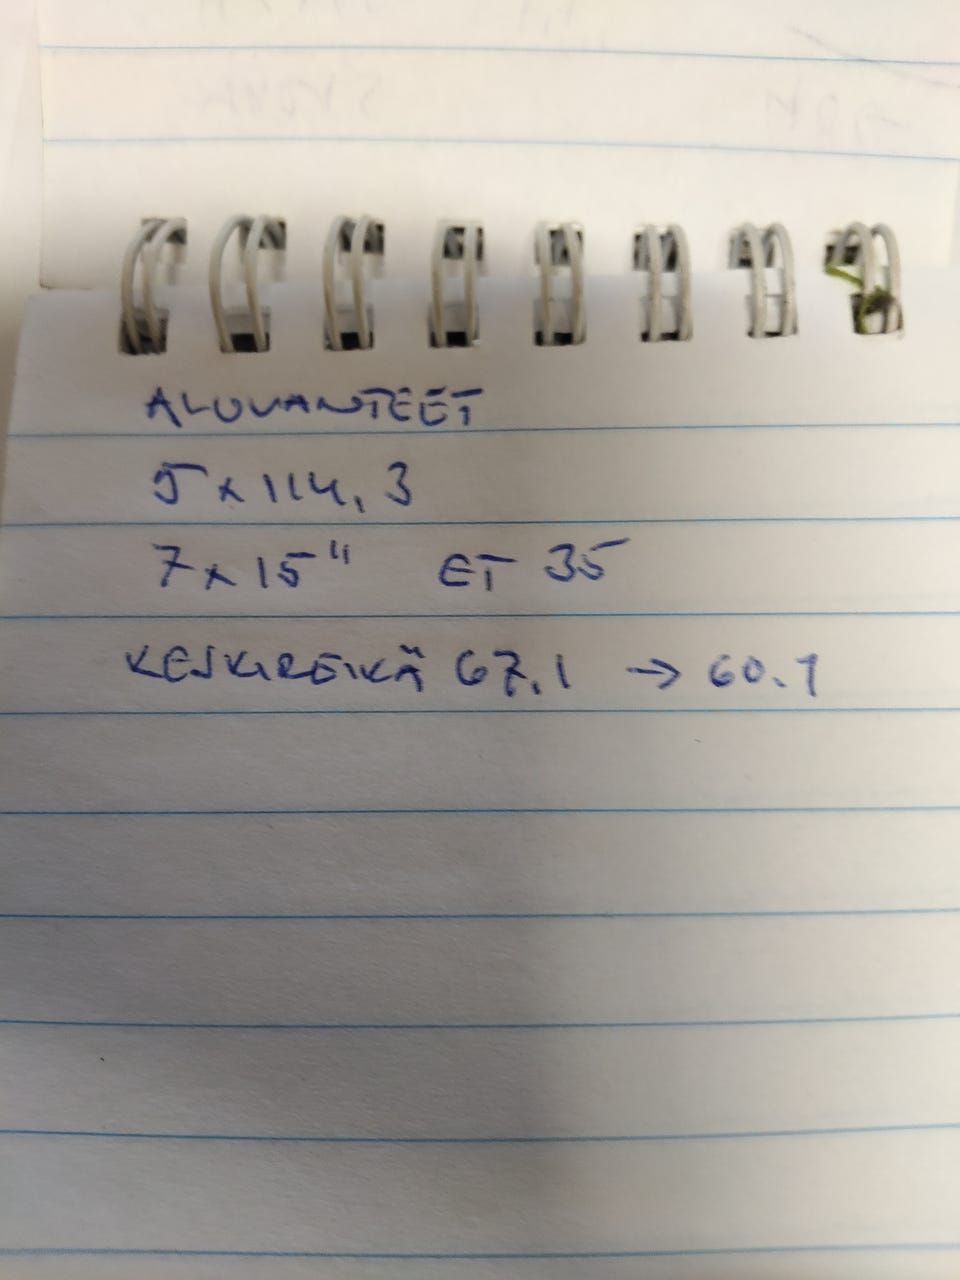 ALUVANTEET
5 x 114,3
7 x 15" ET 35
KESKIREIKÄ 67,1 → 60.1